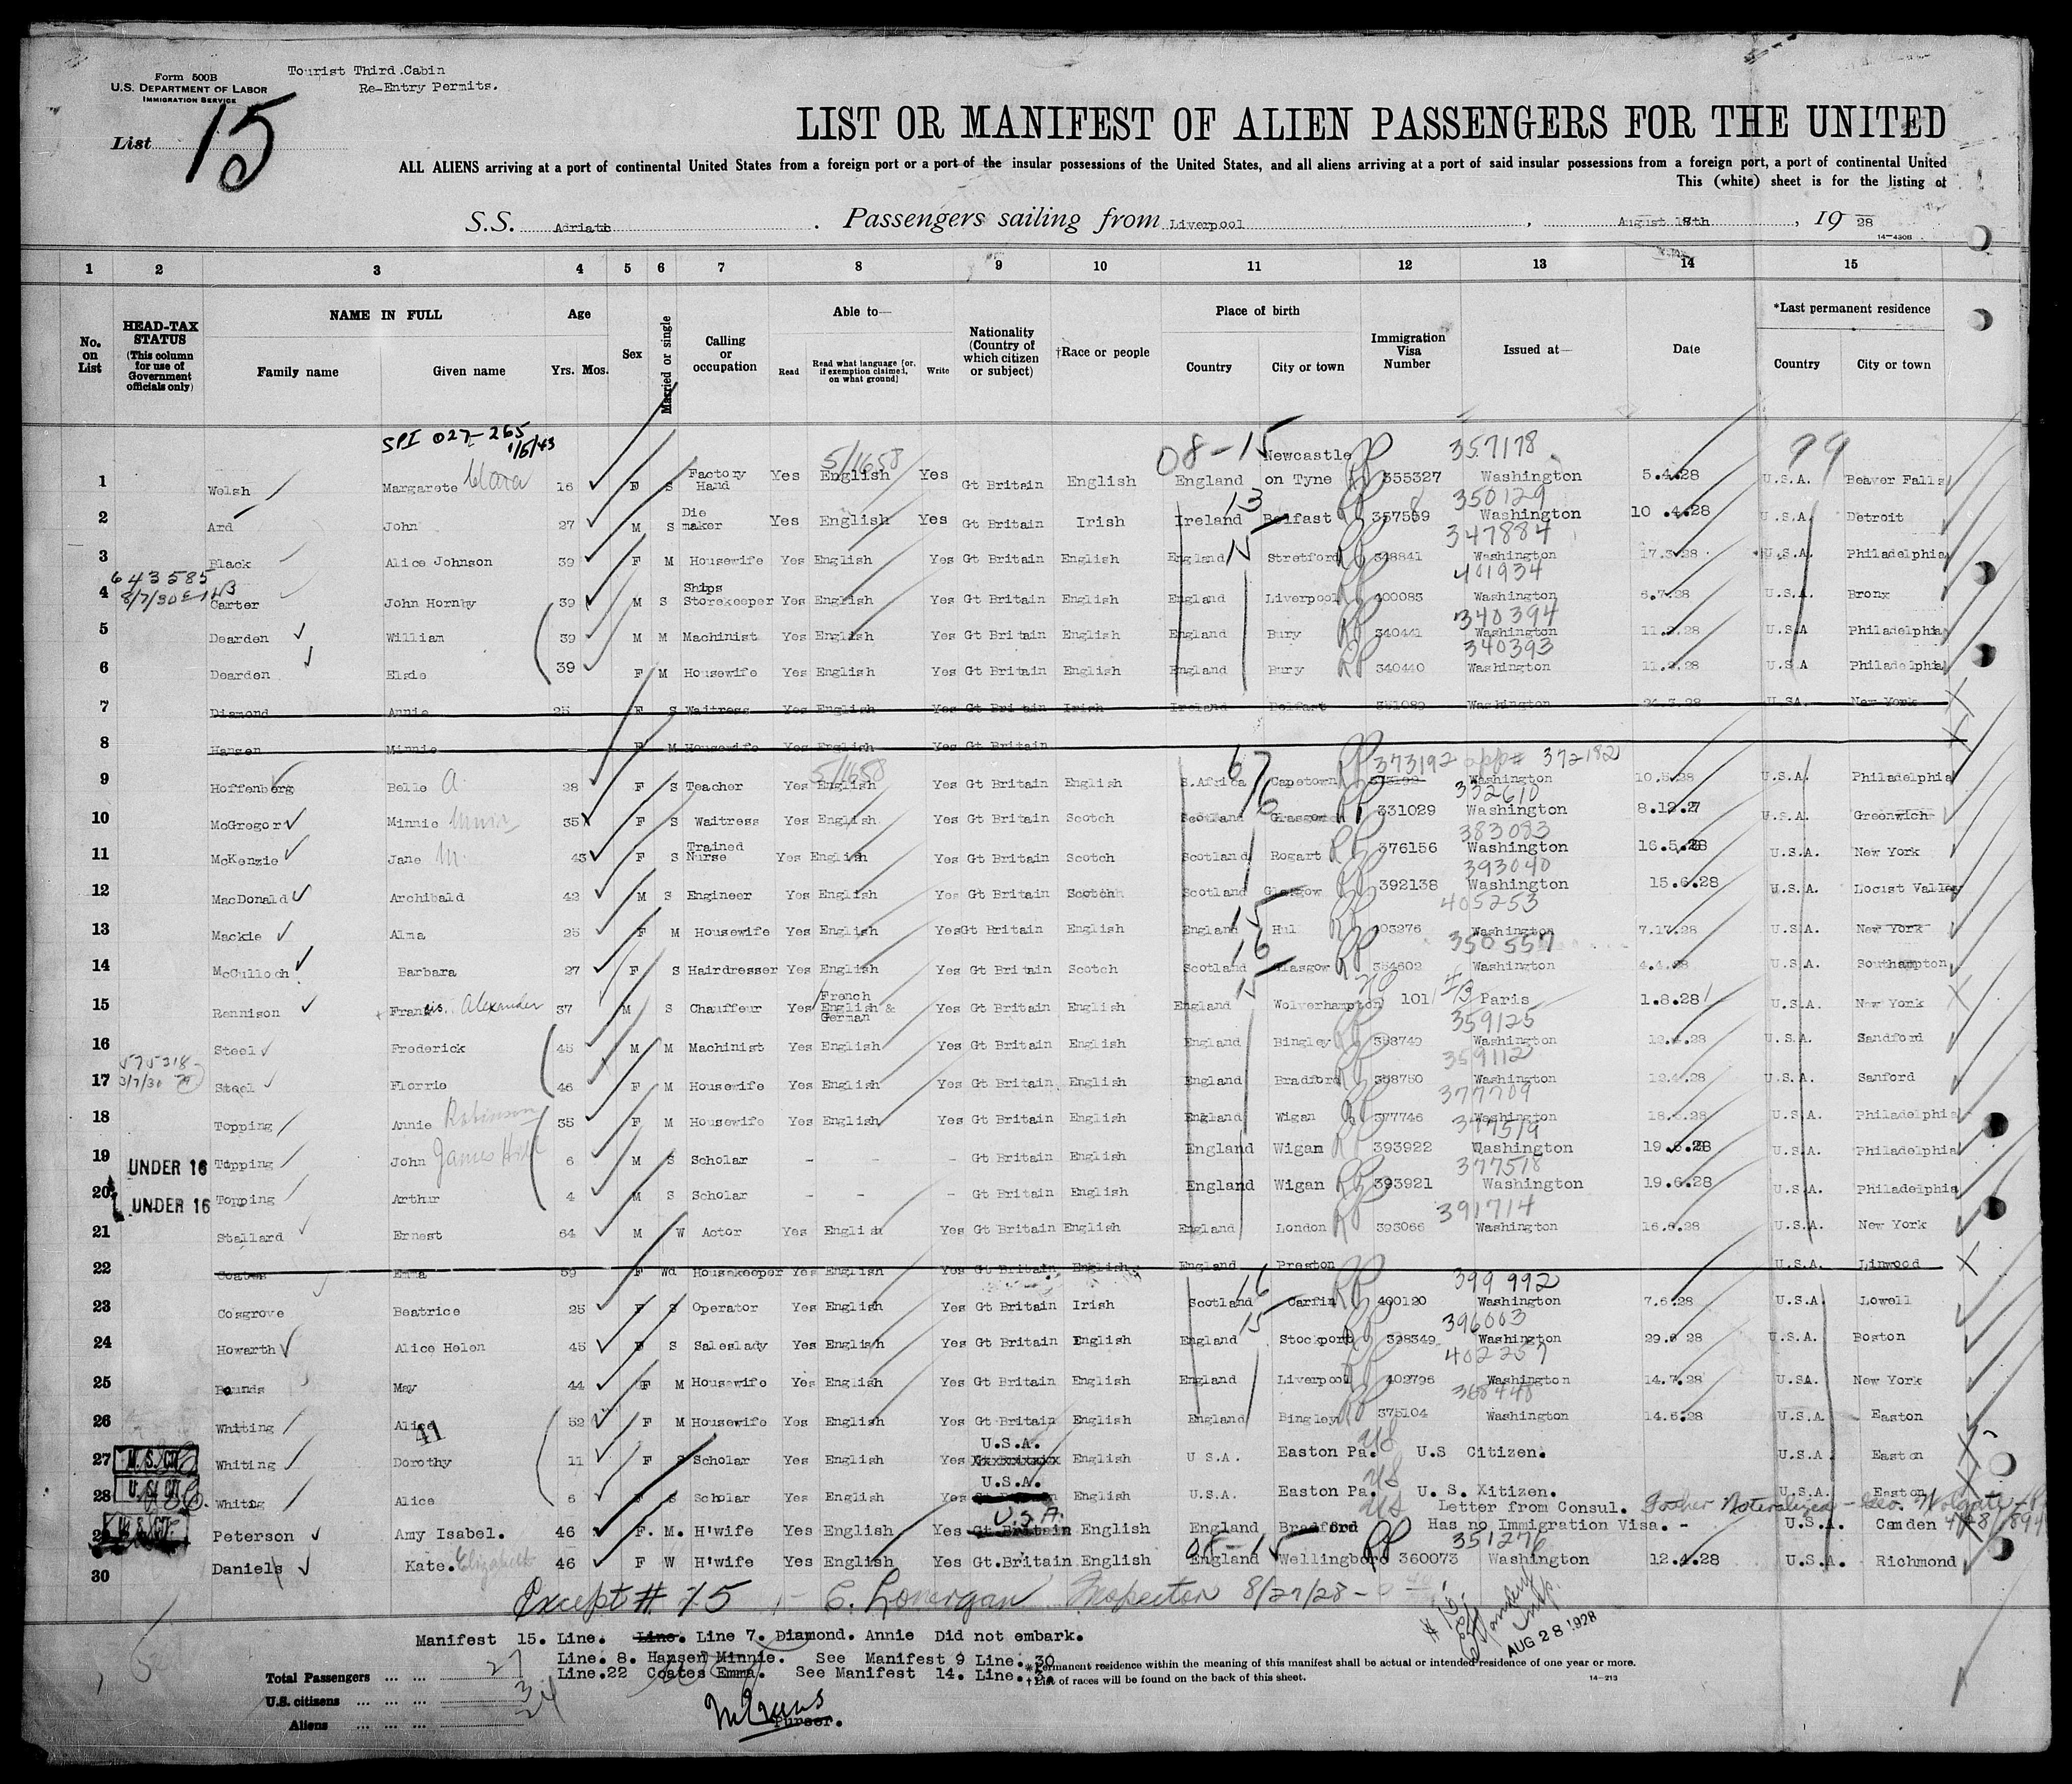 Form 500B
U.S. DEPARTMENT OF LABOR
IMMIGRATION SERVICE
Tourist Third Cabin
Re-Entry Permits.
List 15
LIST OR MANIFEST OF ALIEN PASSENGERS FOR THE UNITED
ALL ALIENS arriving at a port of continental United States from a foreign port or a port of the insular possessions of the United States, and all aliens arriving at a port of said insular possessions from a foreign port, a port of continental United
This (white) sheet is for the listing of
S.S. Adriatic . Passengers sailing from Liverpool , August 18th , 19 28
14-430B
1 2 3 4 5 6 7 8 9 10 11 12 13 14 15
No. on List
HEAD-TAX STATUS (This column for use of Government officials only)
NAME IN FULL
Family name Given name
Age
Yrs. Mos.
Sex
Married or single
Calling or occupation
Able to—
Read Read what language [or, if exemption claimed, on what ground] Write
Nationality (Country of which citizen or subject)
†Race or people
Place of birth
Country City or town
Immigration Visa Number
Issued at—
Date
*Last permanent residence
Country City or town
SPI 027-265 1/5/43
08-15 357178 99
1 Welsh Margarete Clara 16 F S Factory Hand Yes English 5/1658 Yes Gt Britain English England Newcastle on Tyne RP 355327 Washington 5.4.28 U.S.A. Beaver Falls
13 350129
2 Ard John 27 M S Die maker Yes English Yes Gt Britain Irish Ireland Belfast RP 357559 Washington 10.4.28 U.S.A. Detroit
15 347884
3 Black Alice Johnson 39 F M Housewife Yes English Yes Gt Britain English England Stretford RP 348841 Washington 17.3.28 U.S.A. Philadelphia
643585 401934
4 Carter John Hornby 39 M S Ships Storekeeper Yes English Yes Gt Britain English England Liverpool RP 400083 Washington 6.7.28 U.S.A. Bronx
340394
5 Dearden William 39 M M Machinist Yes English Yes Gt Britain English England Bury RP 340441 Washington 11.2.28 U.S.A Philadelphia
340393
6 Dearden Elsie 39 F M Housewife Yes English Yes Gt Britain English England Bury RP 340440 Washington 11.2.28 U.S.A Philadelphia
7 Diamond Annie 25 F S Waitress Yes English Yes Gt Britain Irish Ireland Belfast 351089 Washington U.SA. New York
8 Hansen Minnie F M Housewife Yes English Yes Gt Britain
67 373192 app# 372182
9 Hoffenberg Belle A 28 F S Teacher Yes English 5/1658 Yes Gt Britain English S.Africa Capetown RP Washington 10.5.28 U.S.A. Philadelphia
16 332610
10 McGregor Minnie 35 F S Waitress Yes English Yes Gt Britain Scotch Scotland Glasgow RP 331029 Washington 8.12.27 U.S.A. Greenwich
383083
11 McKenzie Jane M. 43 F S Trained Nurse Yes English Yes Gt Britain Scotch Scotland Rogart RP 376156 Washington 16.5.28 U.S.A. New York
393040
12 MacDonald Archibald 42 M S Engineer Yes English Yes Gt Britain Scotch Scotland Glasgow RP 392138 Washington 15.6.28 U.S.A. Locust Valley
15 405253
13 Mackie Alma 25 F M Housewife Yes English Yes Gt Britain English England Hull RP 403276 Washington 7.17.28 U.S.A. New York
16 350557
14 McCulloch Barbara 27 F S Hairdresser Yes English Yes Gt Britain Scotch Scotland Glasgow RP 354602 Washington 4.4.28 U.S.A. Southampton
15
15 Rennison Francis. Alexander 37 M S Chauffeur Yes French English & German Yes Gt Britain English England Wolverhampton 101 Paris 1.8.28 U.S.A. New York
359125
16 Steel Frederick 45 M M Machinist Yes English Yes Gt Britain English England Bingley RP 358749 Washington 12.4.28 U.S.A. Sandford
575318 3/7/30 359112
17 Steel Florrie 46 F M Housewife Yes English Yes Gt Britain English England Bradford RP 358750 Washington 12.4.28 U.S.A. Sanford
377709
18 Topping Annie Robinson 35 F M Housewife Yes English Yes Gt Britain English England Wigan RP 377746 Washington 18.5.28 U.S.A. Philadelphia
377519
19 UNDER 16 Topping John James Hill 6 M S Scholar - - - Gt Britain English England Wigan RP 393922 Washington 19.6.28 U.S.A. Philadelphia
377518
20 UNDER 16 Topping Arthur 4 M S Scholar - - - Gt Britain English England Wigan RP 393921 Washington 19.6.28 U.S.A. Philadelphia
391714
21 Stallard Ernest 64 M W Actor Yes English Yes Gt Britain English England London RP 393066 Washington 16.6.28 U.S.A. New York
22 Coates Emma 59 F Wd Housekeeper Yes English Yes Gt Britain English England Preston U.S.A. Linwood
16 399992
23 Cosgrove Beatrice 25 F S Operator Yes English Yes Gt Britain Irish Scotland Carfin RP 400120 Washington 7.6.28 U.S.A. Lowell
15 396003
24 Howarth Alice Helen 45 F S Saleslady Yes English Yes Gt Britain English England Stockport RP 398349 Washington 29.6 28 U.S.A. Boston
402257
25 Bounds May 44 F M Housewife Yes English Yes Gt Britain English England Liverpool RP 402796 Washington 14.7.28 U.SA. New York
368448
26 Whiting Alice 41 52 F M Housewife Yes English Yes Gt Britain English England Bingley RP 375104 Washington 14.5.28 U.S.A Easton
27 U.S. CIT. Whiting Dorothy 11 F S Scholar Yes English Yes U.S.A. English U.S.A. Easton Pa. US U.S Citizen. U.S.A Easton
28 U.S. CIT. Whiting Alice 6 F S Scholar Yes English Yes U.S.A. English U.S.A. Easton Pa. US U.S. Xitizen. U.S.A. Easton
Letter from Consul. Father Naturalized
29 U.S. CIT. Peterson Amy Isabel. 46 F. M. H'wife Yes English Yes Gt Britain U.S.A. English England Bradford US Has no Immigration Visa. - U.S.A. Camden
08-15 351276
30 Daniels Kate. Elizabeth 46 F W H'wife Yes English Yes Gt.Britain English England Wellingboro RP 360073 Washington 12.4.28 U.S.A. Richmond
Except # 15 C. Lonergan Inspector 8/27/28
# 15 Insp.
AUG 28 1928
Manifest 15. Line. Line. Line 7. Diamond. Annie Did not embark.
Line. 8. Hansen Minnie. See Manifest 9 Line. 30
Line.22 Coates Emma. See Manifest 14. Line. 3.
Total Passengers ... ... 27
U.S. citizens ... ... ... 3
Aliens ... ... ... 24
Purser.
*Permanent residence within the meaning of this manifest shall be actual or intended residence of one year or more.
†List of races will be found on the back of this sheet.
14-213